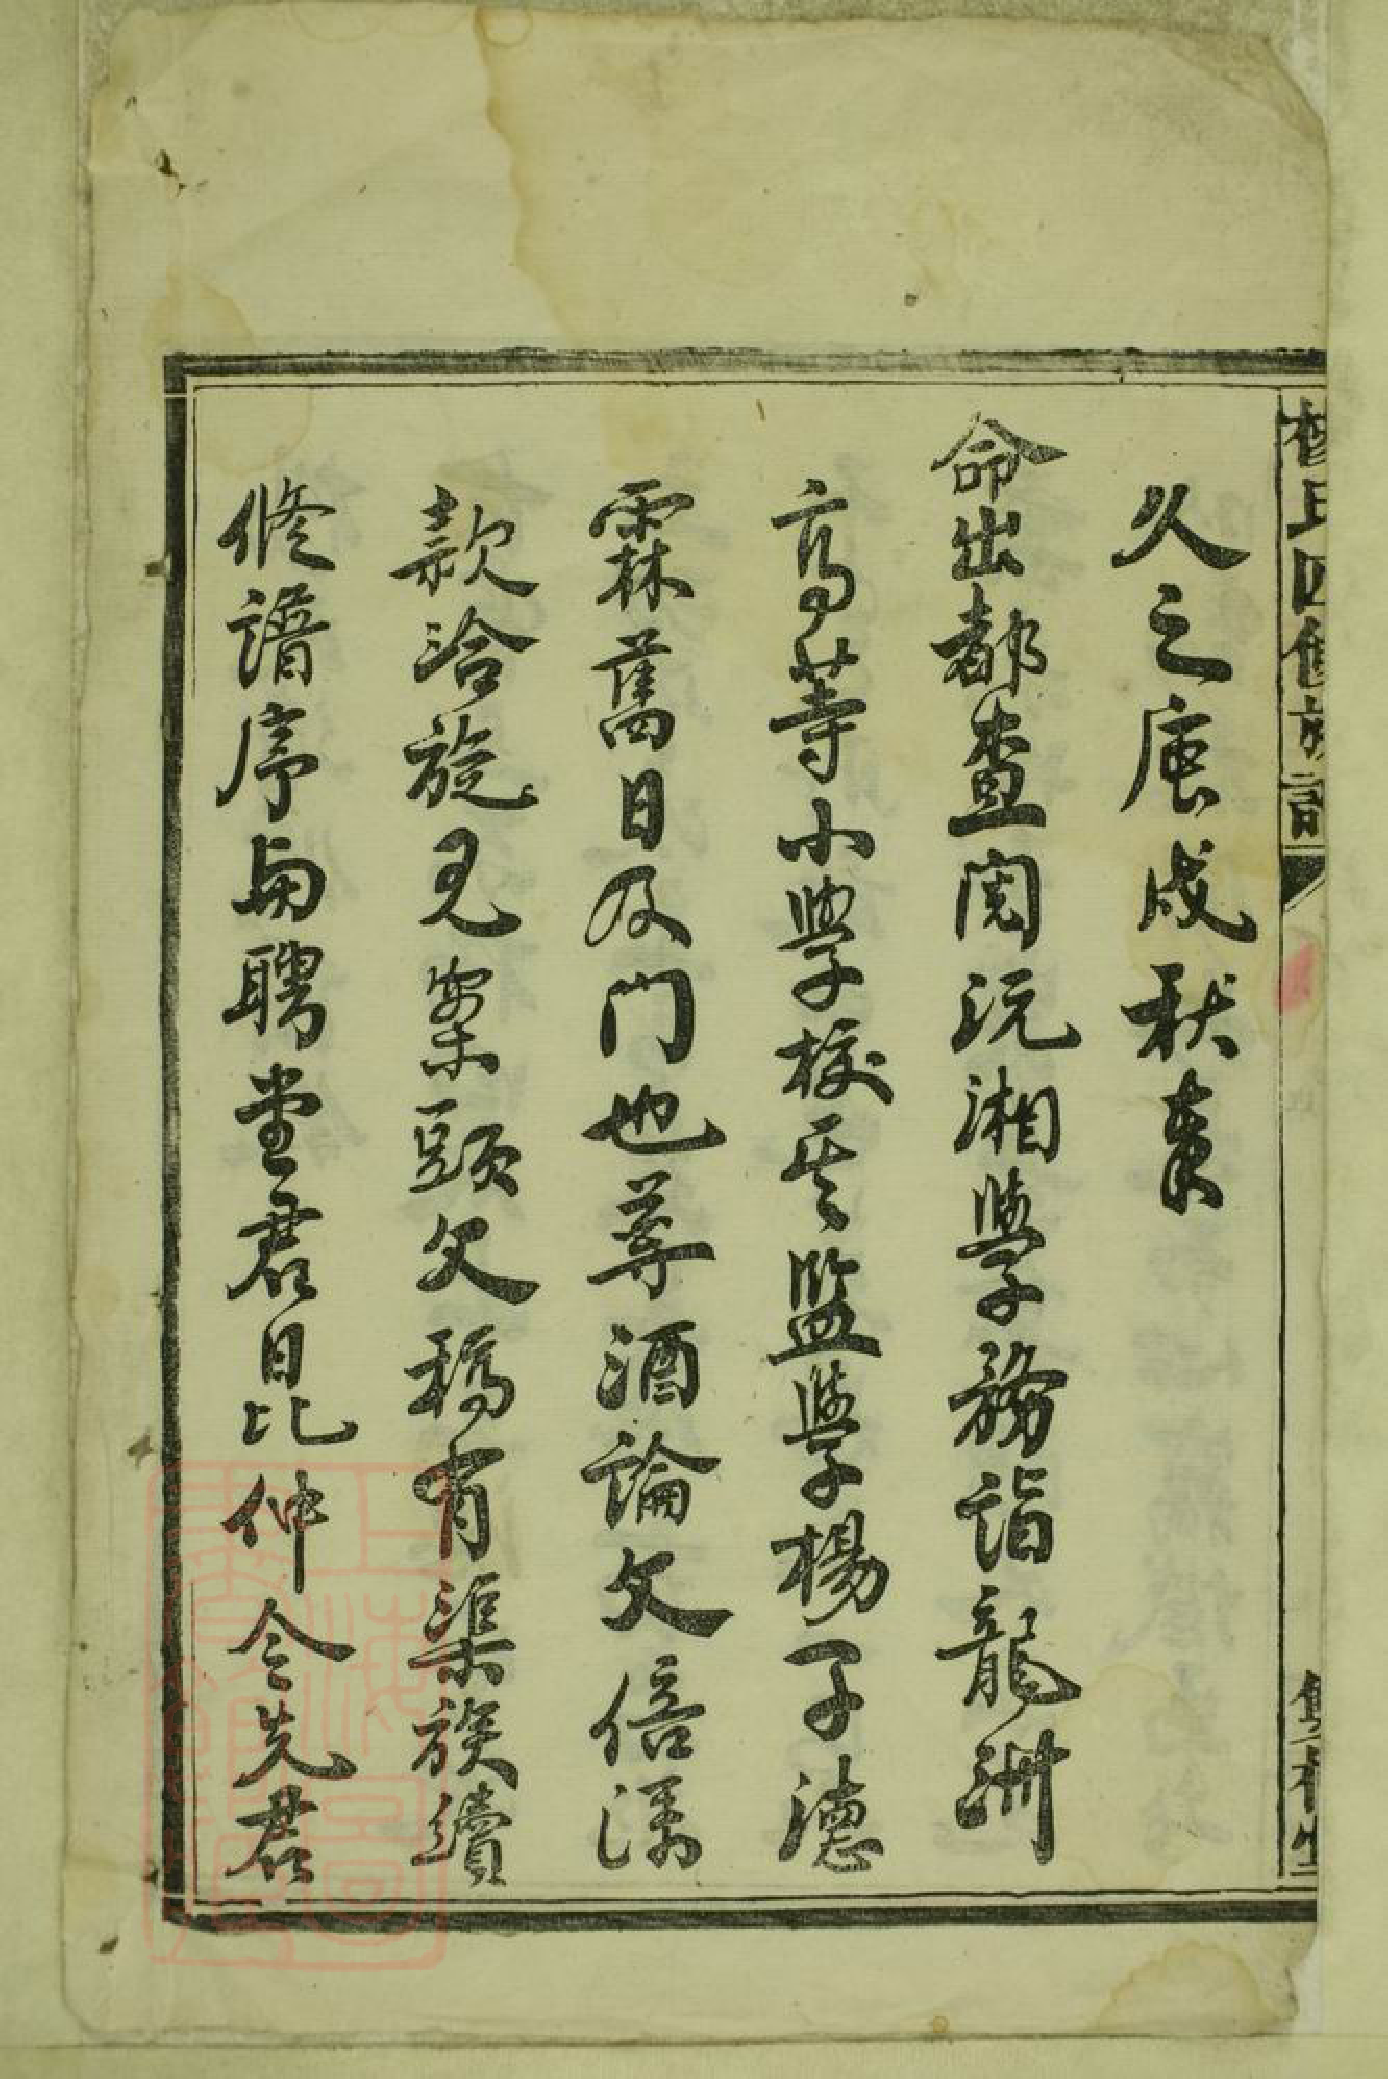 楊氏四修族譜
久之庚戌秋奉
命出都查閱沅湘學務詣龍洲
高等小學校其監學楊子德
霖舊日及門也尊酒論文倍深
款洽旋見案頭文稿有渠族續
修譜序與聘堂君目比仲令先君
上海圖書館藏